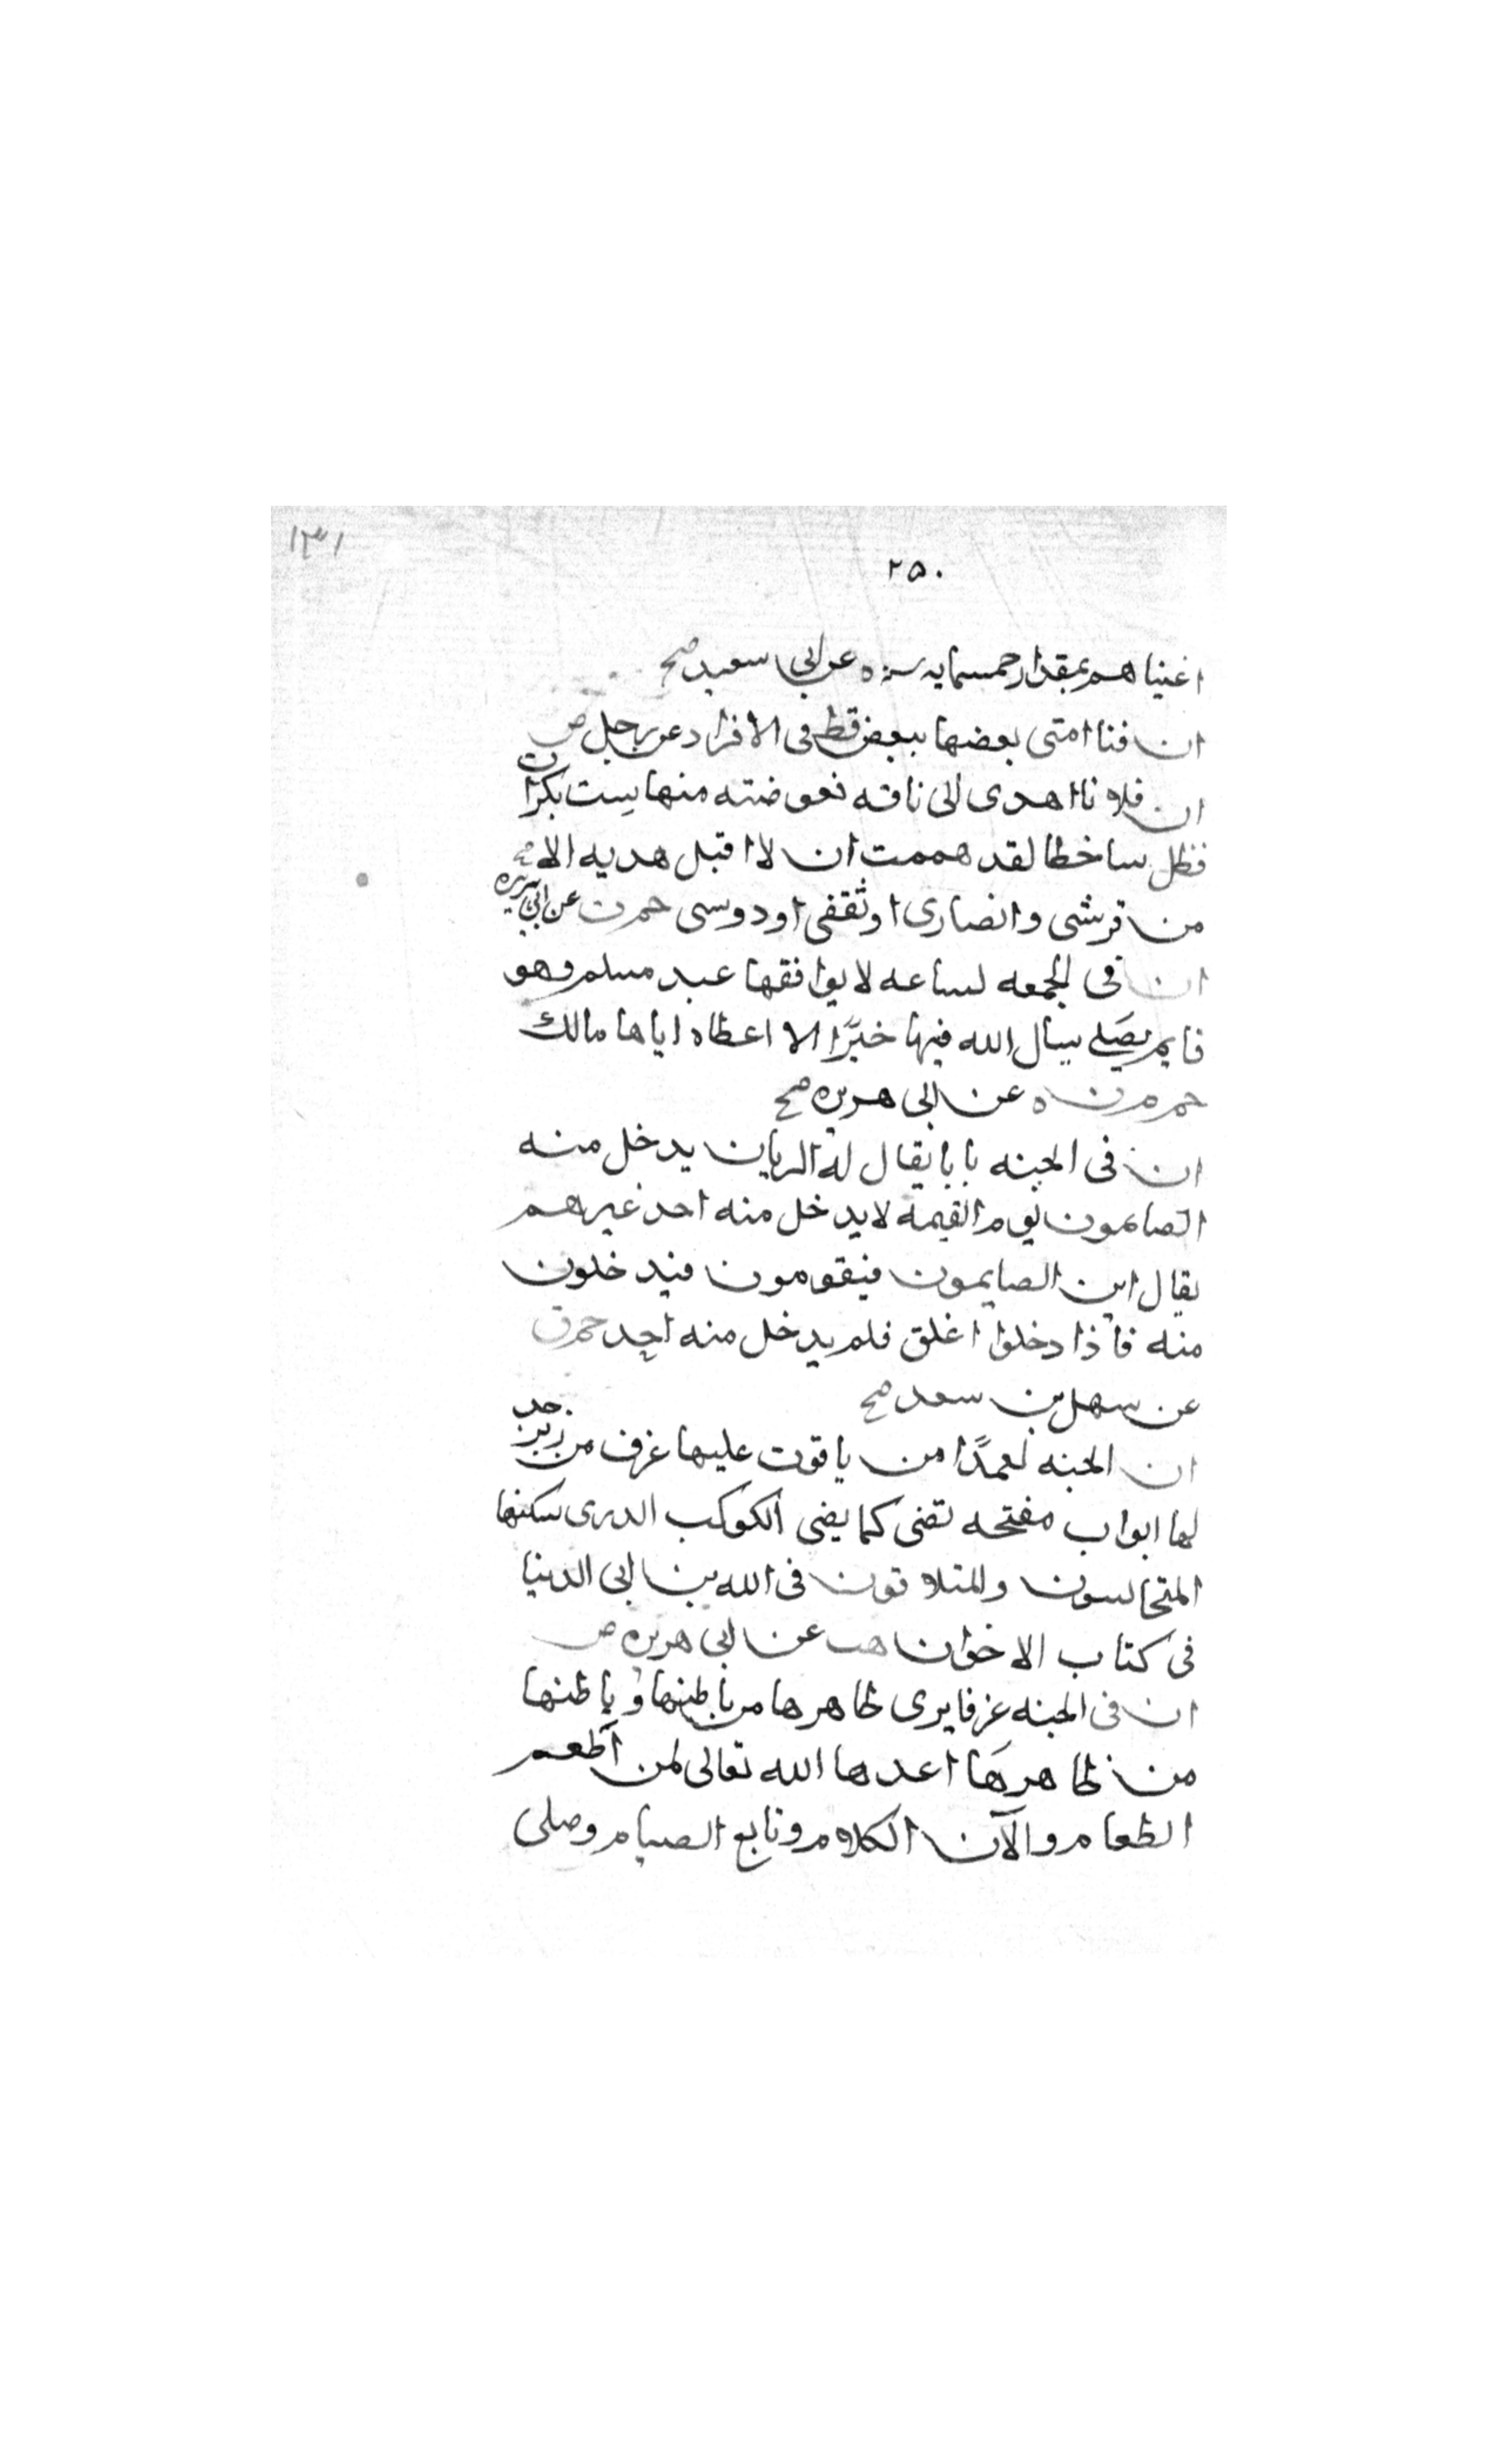 ١٣١
٢٥٠
اغنياهم بمقدار خمسمايه سنه ه عن ابى سعيد صح
ان فنا امتى بعضها ببعض قط فى الافراد عن رجل ض
ان فلانا اهدى الى ناقه فعوضته منها ست بكرات
فظل ساخطا لقد هممت ان لا اقبل هديه الا
من قرشى وانصارى او ثقفى او دوسى حم ت عن ابى هريره صح
ان فى الجمعه لساعه لا يوافقها عبد مسلم وهو
قايم يصلى يسال الله فيها خيرًا الا اعطاه اياها مالك
حم م ن ه عن ابى هريره صح
ان فى الجنه بابا يقال له الريان يدخل منه
الصايمون يوم القيمه لا يدخل منه احد غيرهم
يقال اين الصايمون فيقومون فيدخلون
منه فاذا دخلوا اغلق فلم يدخل منه احد حم ق
عن سهل بن سعد صح
ان الجنه لعمدًا من ياقوت عليها غرف من زبرجد
لها ابواب مفتحه تضى كما يضى الكوكب الدرى يسكنها
المتجالسون والمتلاقون فى الله بن ابى الدنيا
فى كتاب الاخوان هب عن ابى هريره ض
ان فى الجنه غرفا يرى ظاهرها من باطنها وباطنها
من ظاهرها اعدها الله تعالى لمن اطعم
الطعام والآن الكلام وتابع الصيام وصلى